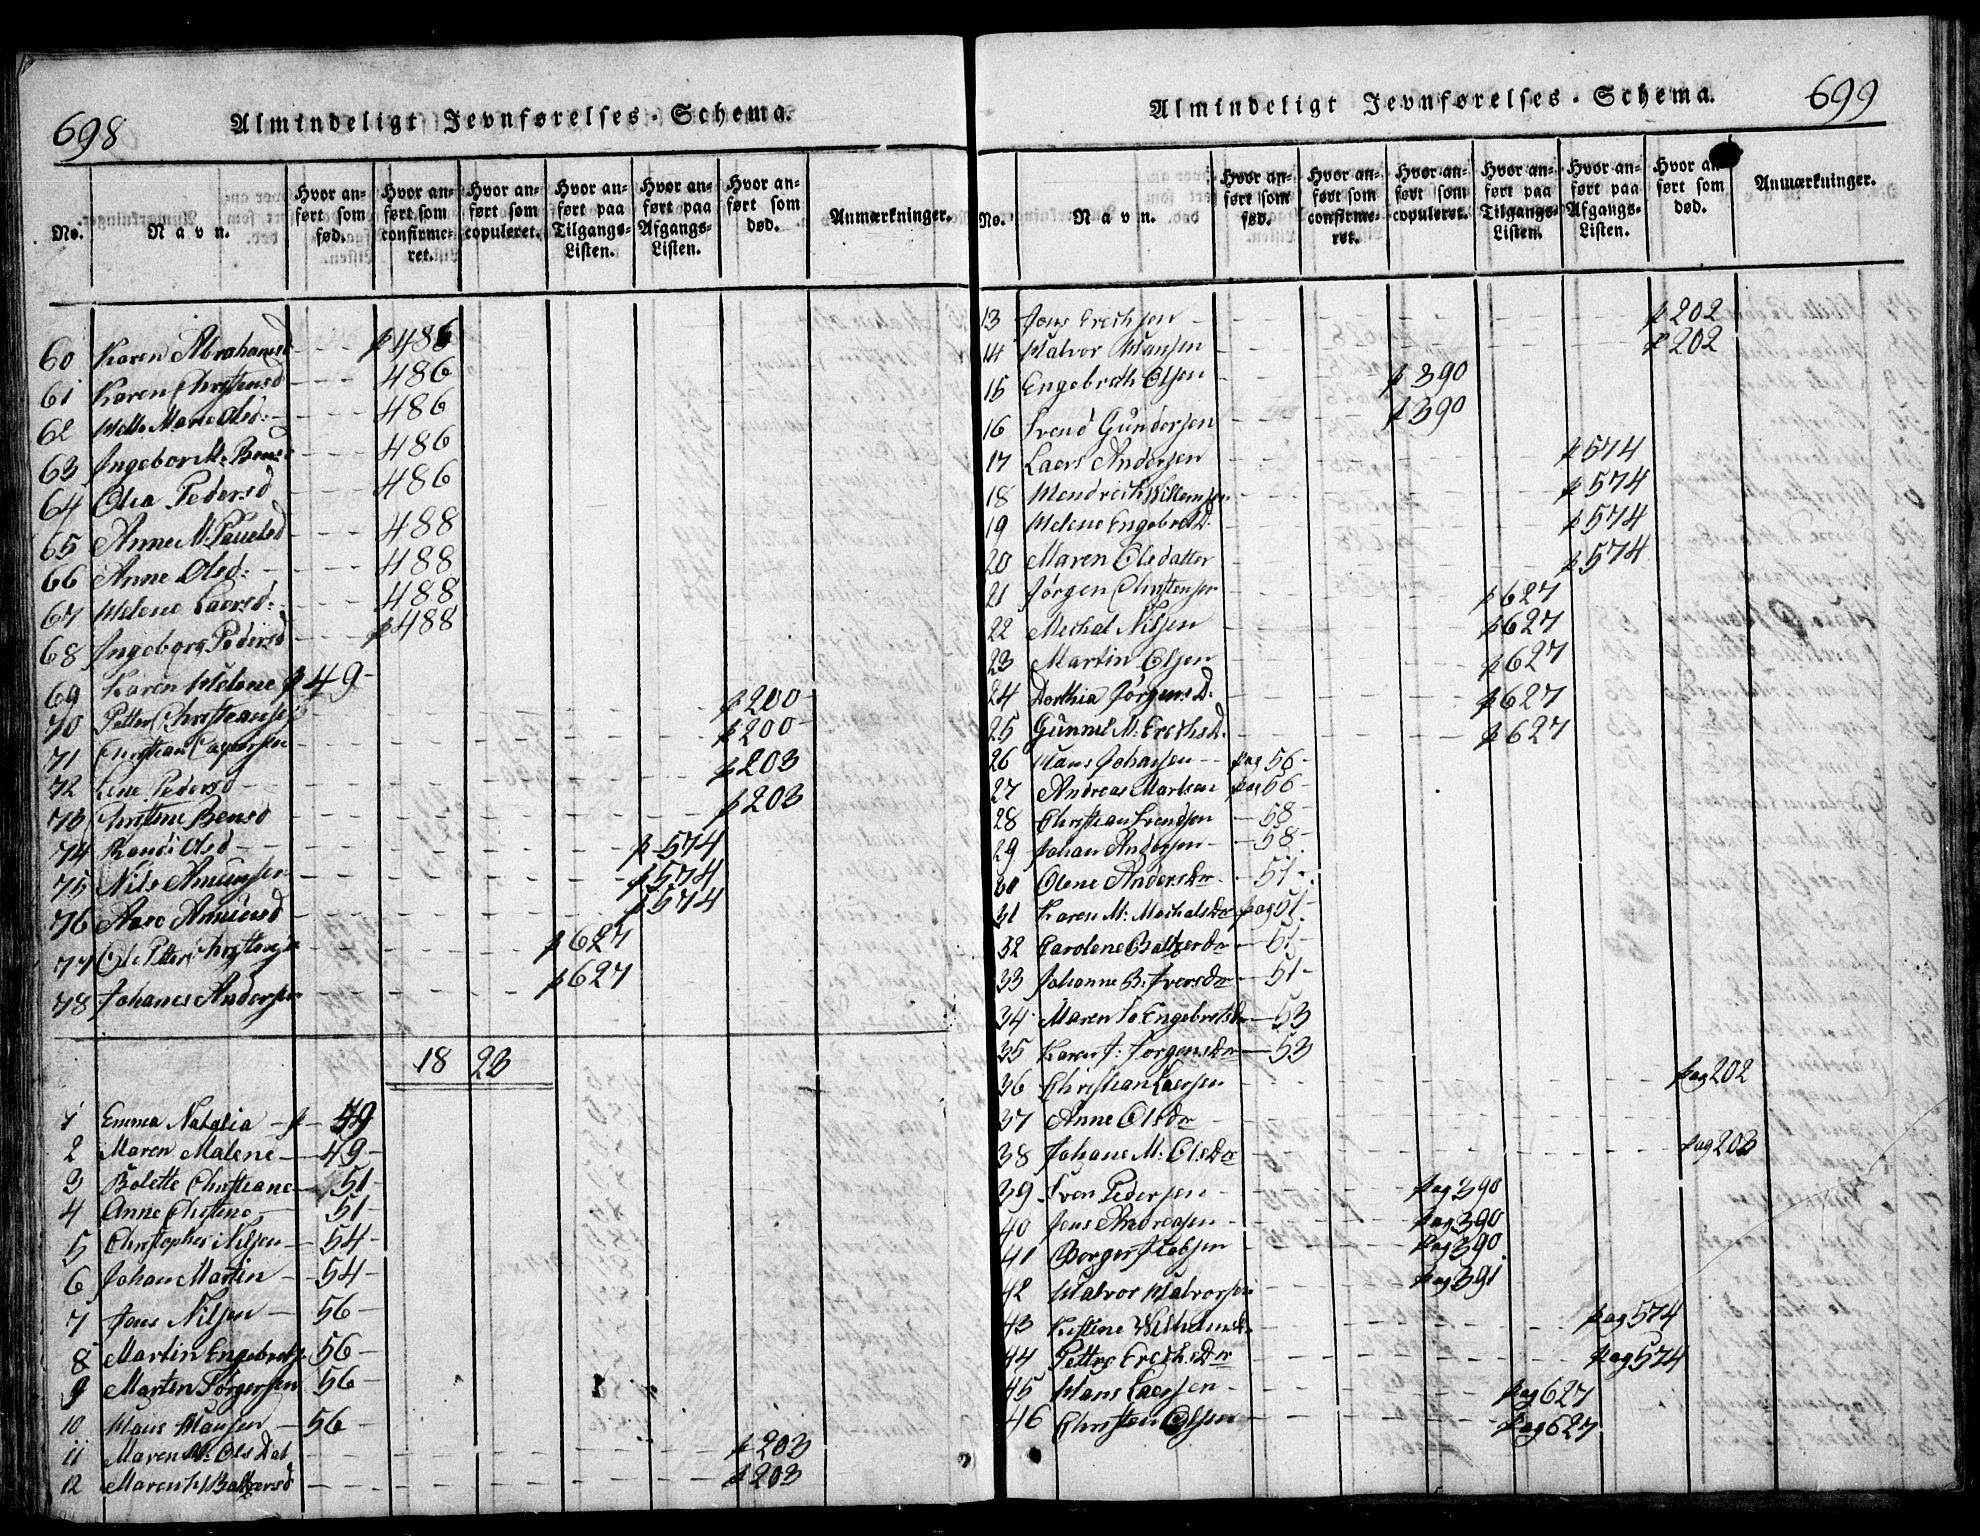 698
Almindeligt Jevnførelses-Schema.
No. Navn. Hvor anført som fød. Hvor anført som confirmeret. Hvor anført som copuleret. Hvor anført paa Tilgangs-Listen. Hvor anført paa Afgangs-Listen. Hvor anført som død. Anmærkninger.
60 Karen Abrahamsd p 486
61 Karen Christensd 486
62 Helle Marie Olsd: 486
63 Ingebor M. Bens 486
64 Olea Pedersd 486
65 Anne M. Pauelsd 488
66 Anne Olsd: 488
67 Helene Laersd: 488
68 Ingeborg Pedersd p 488
69 Karen Helene p 49
70 Petter Christiansen p 200
71 Christian Caspersen p 200
72 Lene Pedersd p 203
73 Christine Bensd p 203
74 Randi Olsd p 574
75 Nils Amunsen p 574
76 Aase Amunsd p 574
77 Ole Petter Christensen p 627
78 Johanes Andersen p 627
18 23
1 Emma Natalia p 49
2 Maren Malene 49
3 Bolette Christiane 51
4 Anne Christine 51
5 Christopher Nilsen 54
6 Johan Martin 54
7 Jens Nilsen 56
8 Martin Engebrets 56
9 Marten Jørgensen 56
10 Hans Hansen 56
11 Maren M. Olsdat p 203
12 Maren H Baltzersd p 203
699
Almindeligt Jevnførelses-Schema.
No. Navn. Hvor anført som fød. Hvor anført som confirmeret. Hvor anført som copuleret. Hvor anført paa Tilgangs-Listen. Hvor anført paa Afgangs-Listen. Hvor anført som død. Anmærkninger.
13 Jens Erichsen p 202
14 Halvor Hansen p 202
15 Engebreth Olsen p 390
16 Svend Gundersen p 390
17 Laers Andersen p 574
18 Hendrich Willemsen p 574
19 Helene EngebretsD. p 574
20 Maren Olsdatter p 574
21 Jørgen Christensen p 627
22 Michal Nilsen p 627
23 Martin Olsen p 627
24 Dorthia JørgensD. p 627
25 Gunnil M. ErichsD. p 627
26 Hans Johansen pag 56
27 Andreas Martsen pag 56
28 Christian Svendsen 58
29 Johan Andersen 58
30 Olene AndersDr 51
31 Karen M: MichalsDr pag 51
32 Carolene BaltzerDr 51
33 Johanne B. IversDr 51
34 Maren So EngebretsDr 53
35 Karen J: JørgensDr 53
36 Christian Laersen pag 202
37 Anne OlsDr
38 Johane M. OlsDr pag 203
39 Sven Pedersen pag 390
40 Jens Andreasen pag 390
41 Borger Jacobsen pag 390
42 Halvor Halvorsen pag 391
43 Kistine WilhelmsD. pag 574
44 Pettre ErichsDr pag 574
45 Hans Laersen pag 627
46 Christen Olsen pag 627